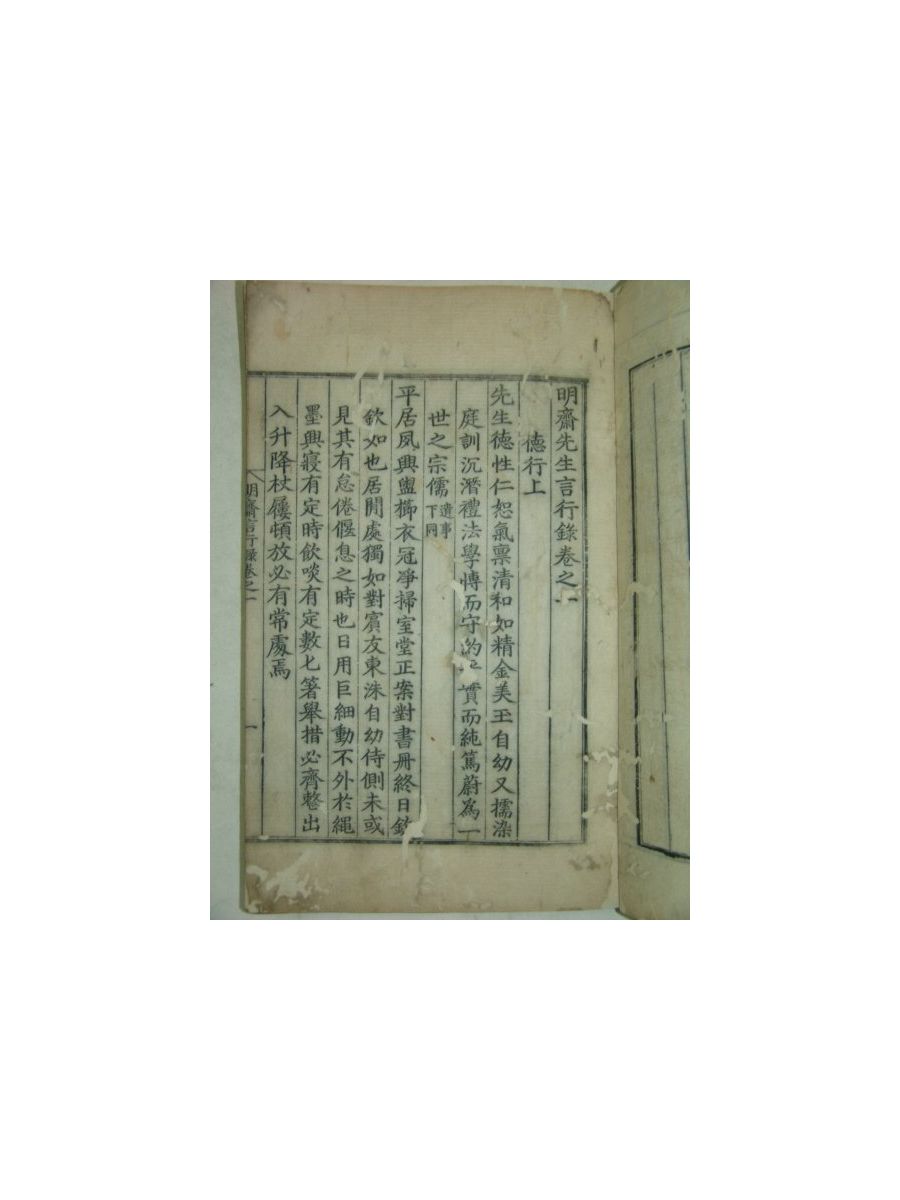 明齋先生言行錄卷之一
德行上
先生德性仁恕氣稟清和如精金美玉自幼又擩染
庭訓沉潛禮法學博而守的 質而純篤蔚爲一
世之宗儒 遺事下同
平居夙興盥櫛衣冠淨掃室堂正案對書冊終日欽
欽如也居閒處獨如對賓友東洙自幼侍側未或
見其有怠倦偃息之時也日用巨細動不外於繩
墨興寢有定時飮啖有定數匕箸舉措必齊整出
入升降杖屨頓放必有常處焉
明齋言行錄卷之一
一